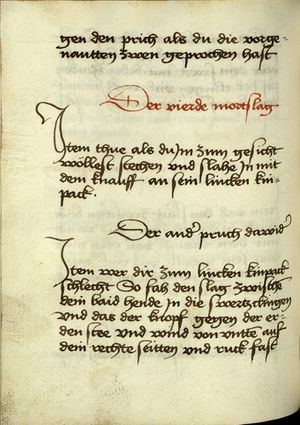 gen den pruch als du die vorge-
nantten zwen geprochen hast
Der vierde mortslag
Item thue als du Im zum gesicht
wöllest stechen und slahe In mit
dem knauff an sein lincken kin-
pack.
Der and' pruch dawid'
Item wer dir zum lincken kinpack
schlecht So fah den slag zwische
dein baid hende In die swertzclingen
und das der knopf gegen der er-
den stee und wind von untte auf
dein rechte seitten und ruck fast